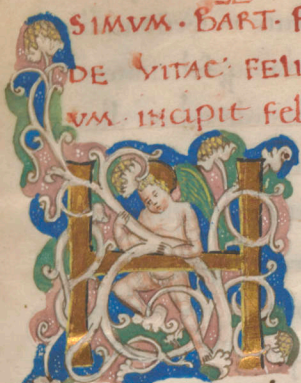 SIMVM · BART · F
DE VITAE FELI
VM · INCIPIT FEL
H